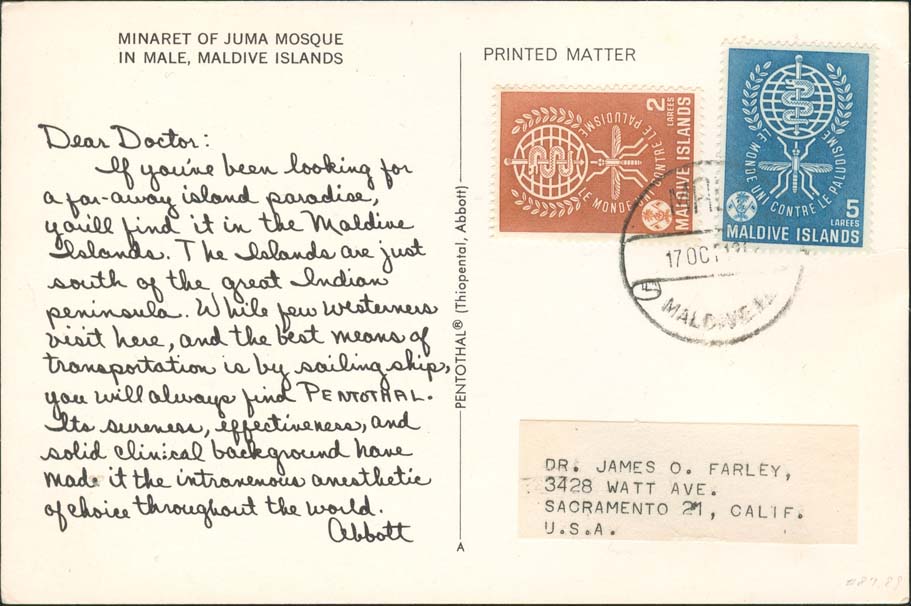 MINARET OF JUMA MOSQUE
IN MALE, MALDIVE ISLANDS
Dear Doctor:
If you've been looking for
a far-away island paradise,
you'll find it in the Maldive
Islands. The Islands are just
south of the great Indian
peninsula. While few westerners
visit here, and the best means of
transportation is by sailing ship,
you will always find PENTOTHAL.
Its sureness, effectiveness, and
solid clinical background have
made it the intravenous anesthetic
of choice throughout the world.
Abbott
PENTOTHAL® (Thiopental, Abbott)
A
PRINTED MATTER
2
LAREES
MALDIVE ISLANDS
LE MONDE UNI CONTRE LE PALUDISME
5
LAREES
MALDIVE ISLANDS
LE MONDE UNI CONTRE LE PALUDISME
17 OC
MALDIVE
DR. JAMES O. FARLEY,
3428 WATT AVE.
SACRAMENTO 21, CALIF.
U.S.A.